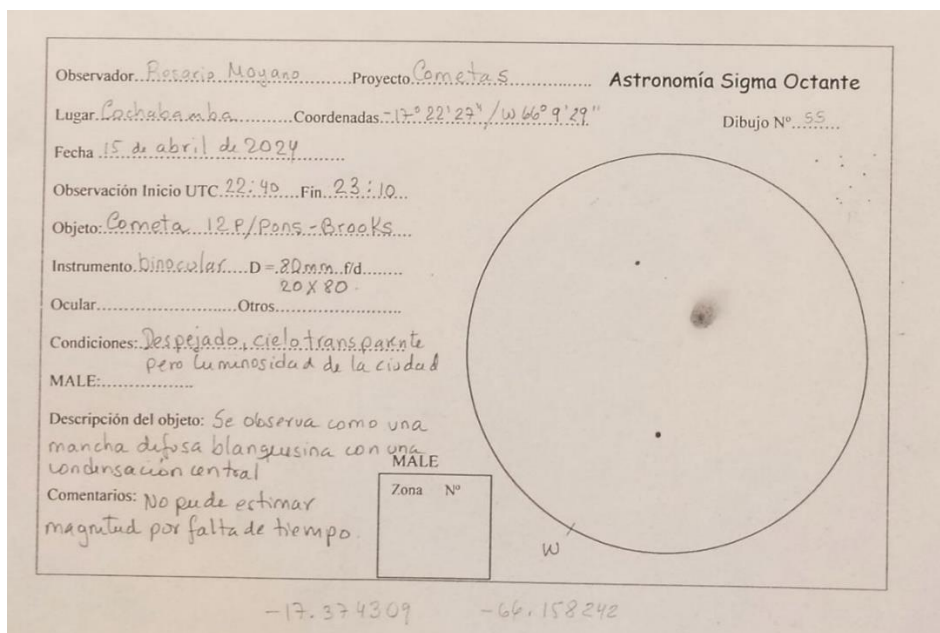 Observador..Rosario Moyano........Proyecto.Cometas................
Astronomía Sigma Octante
Lugar.Cochabamba............Coordenadas.-17° 22'27"/W 66° 9'29"
Dibujo Nº...55.....
Fecha.15 de abril de 2024.............
Observación Inicio UTC.22:40....Fin..23:10..
Objeto:.Cometa 12P/Pons-Brooks....
Instrumento.binocular....D =.80mm..f/d........
20 X 80.
Ocular..........................Otros........................
Condiciones:.Despejado, cielo transparente
pero luminosidad de la ciudad
MALE:.................
Descripción del objeto: Se observa como una
mancha difusa blanqusina con una
condensación central
MALE
Zona Nº
Comentarios: No pude estimar
magnitud por falta de tiempo.
W
-17.374309 -66.158242